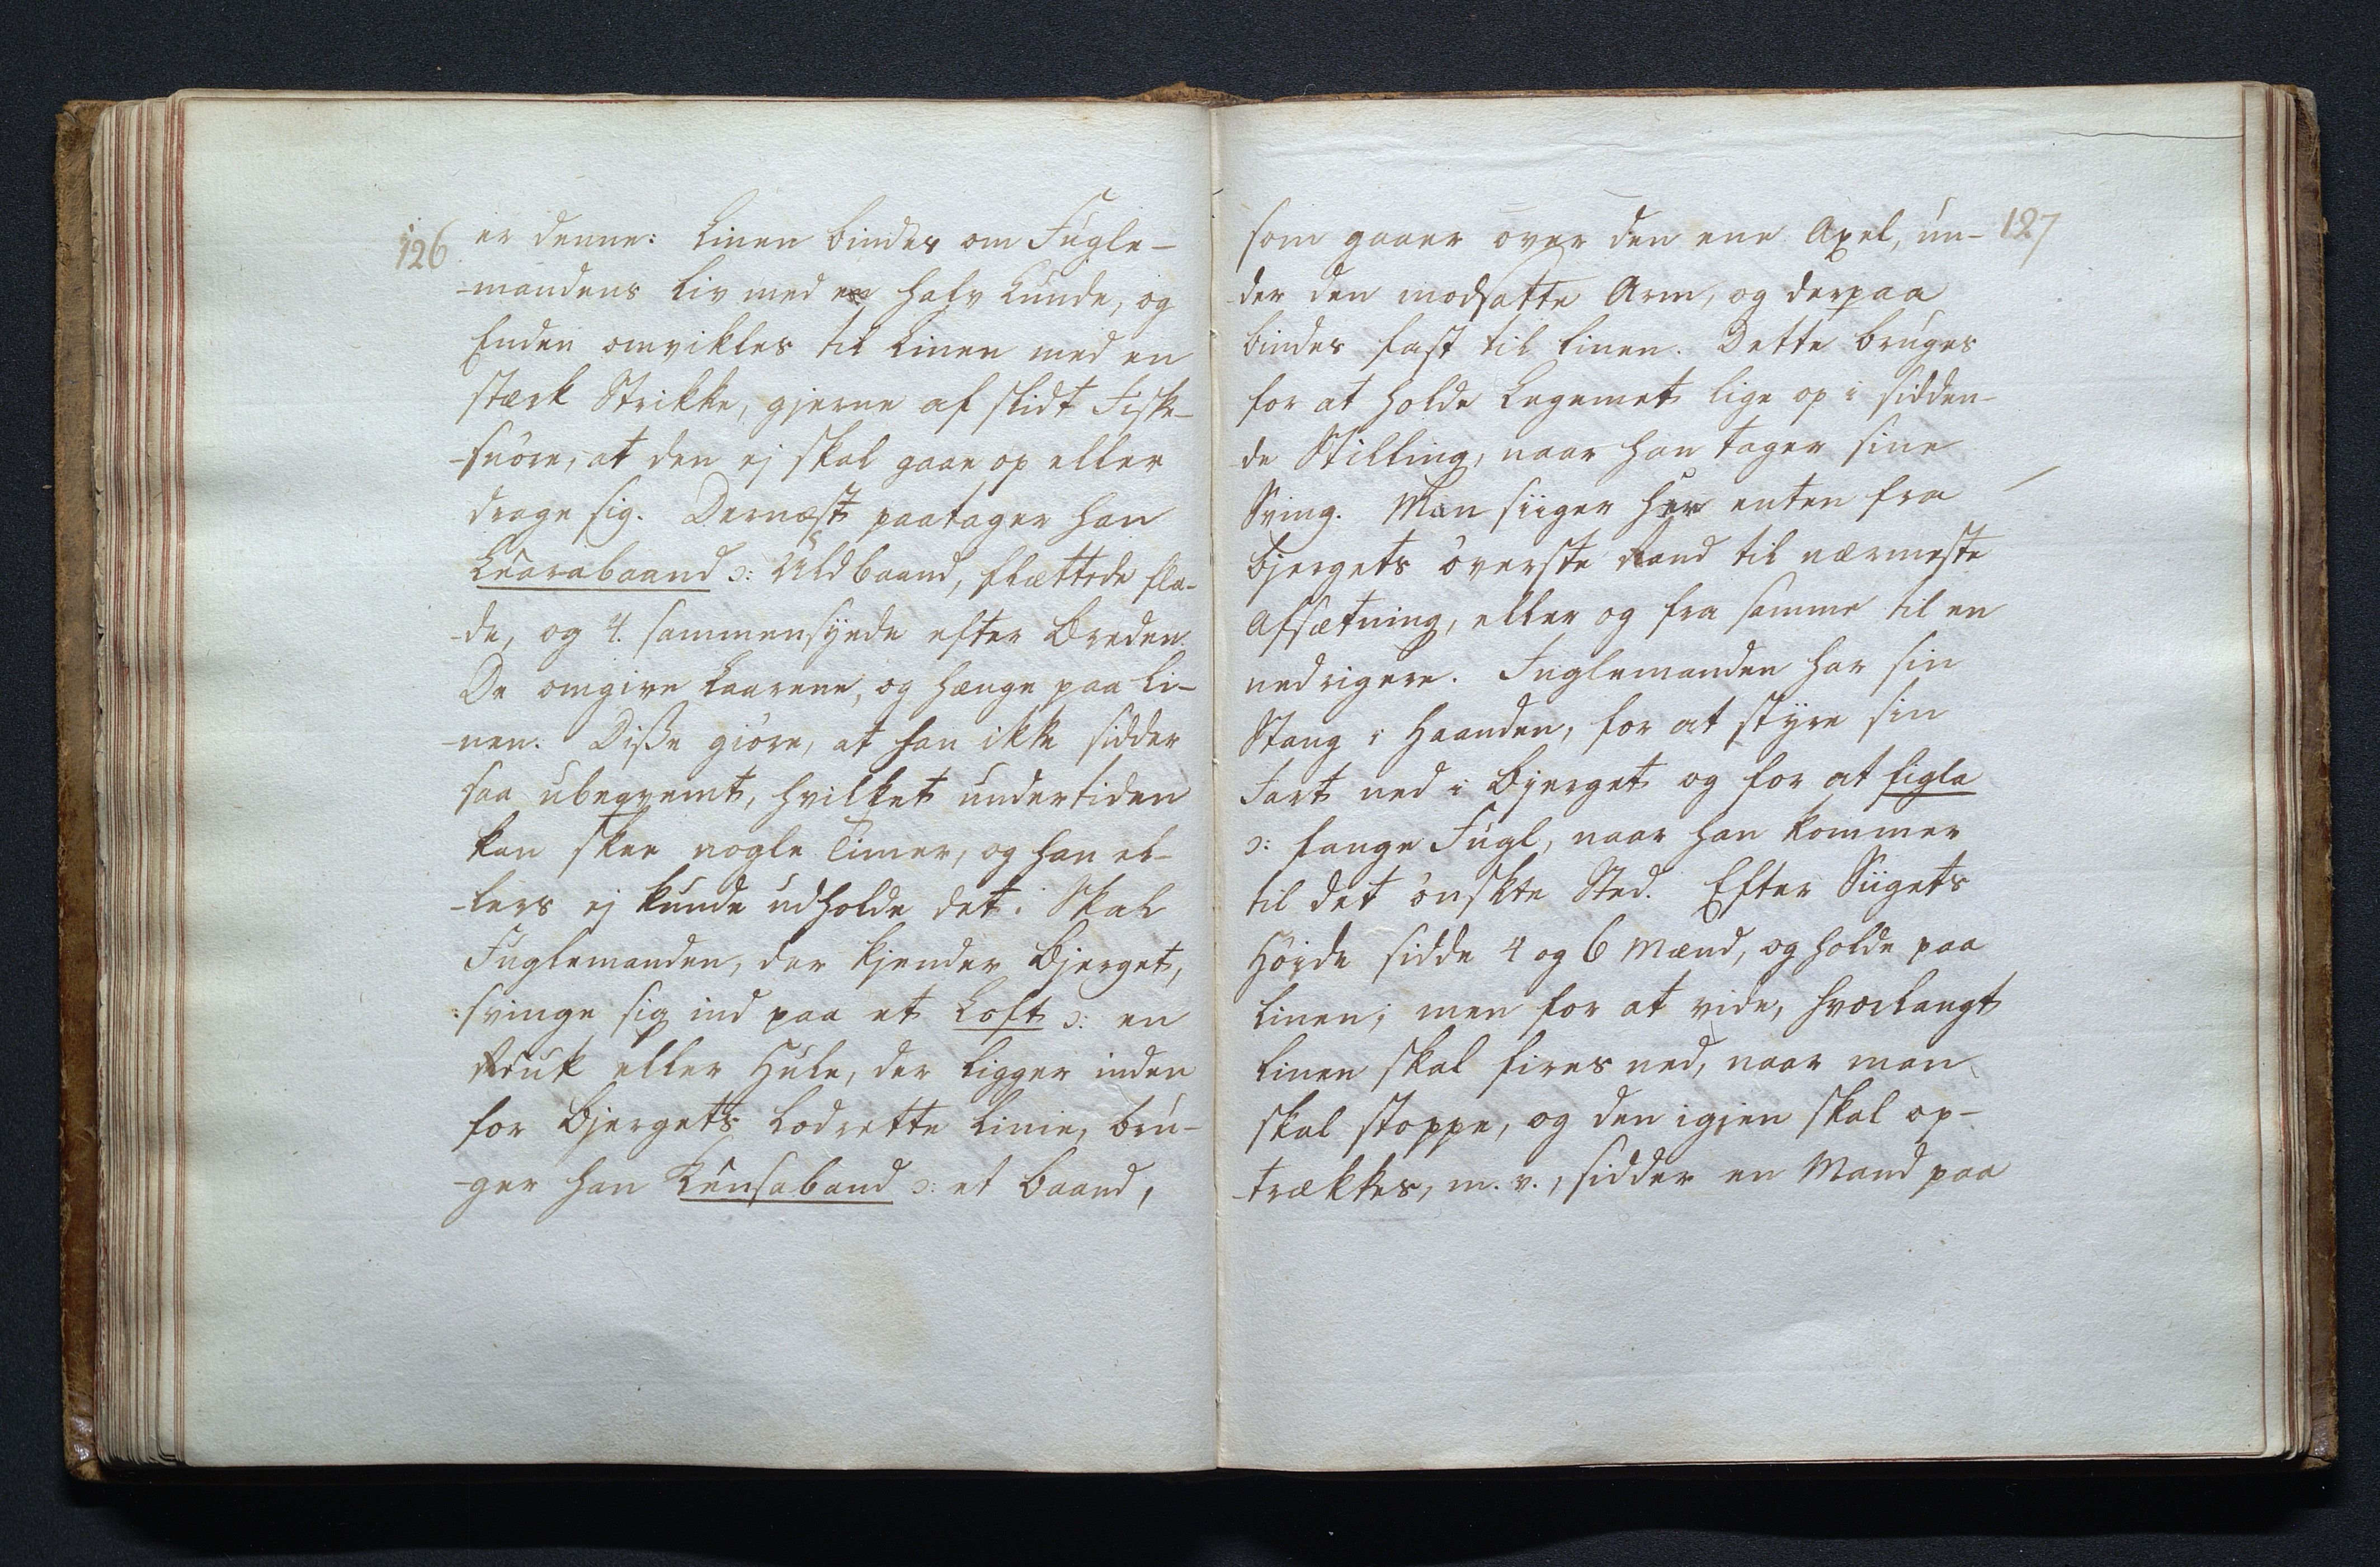 126
er denne: Linen bindes om Fugle-
-mandens Liv med en halv Kunde, og
Enden omvikles til Linen med en
stærk Strikke, gjerne af slidt Fiske-
-snöre, at den ej skal gaae op eller
drage sig. Dernæst paatager han
Learabaand ɔ: Uldbaand, flættede fla-
-de, og 4. sammensyede efter Breden.
De omgive Laarene, og hænge paa Li-
-nen. Disse giöre, at han ikke sidder
saa ubeqvemt, hvilket undertiden
kan skee nogle Timer, og han el-
-lers ej kunde udholde det. Skal
Fuglemanden, der kjender Bjerget,
svinge sig ind paa et Loft ɔ: en
eller Hule, der ligger inden
for Bjergets lodrette Linie, bru-
-ger han ɔ: et Baand,
127
som gaaer over den ene Axel, un-
der den modsatte Arm, og derpaa
bindes fast til Linen. Dette bruges
for at holde Legemet lige op i sidden-
de Stilling, naar han tager sine
Sving. Man siiger her enten fra
Bjergets överste Rand til nærmeste
Afsætning, eller og fra samme til en
nedrigere. Fuglemanden har sin
Stang i Haanden, for at styre sin
Fart ned i Bjerget og for at figla
ɔ: fange Fugl, naar han kommer
til det önskte Sted. Efter Siigets
Höjde sidde 4 og 6 Mænd, og holde paa
Linen; men for at vide, hvorlangt
Linen skal fires ned, naar man
skal stoppe, og den igjen skal op-
-trækkes, m. v., sidder en Mand paa